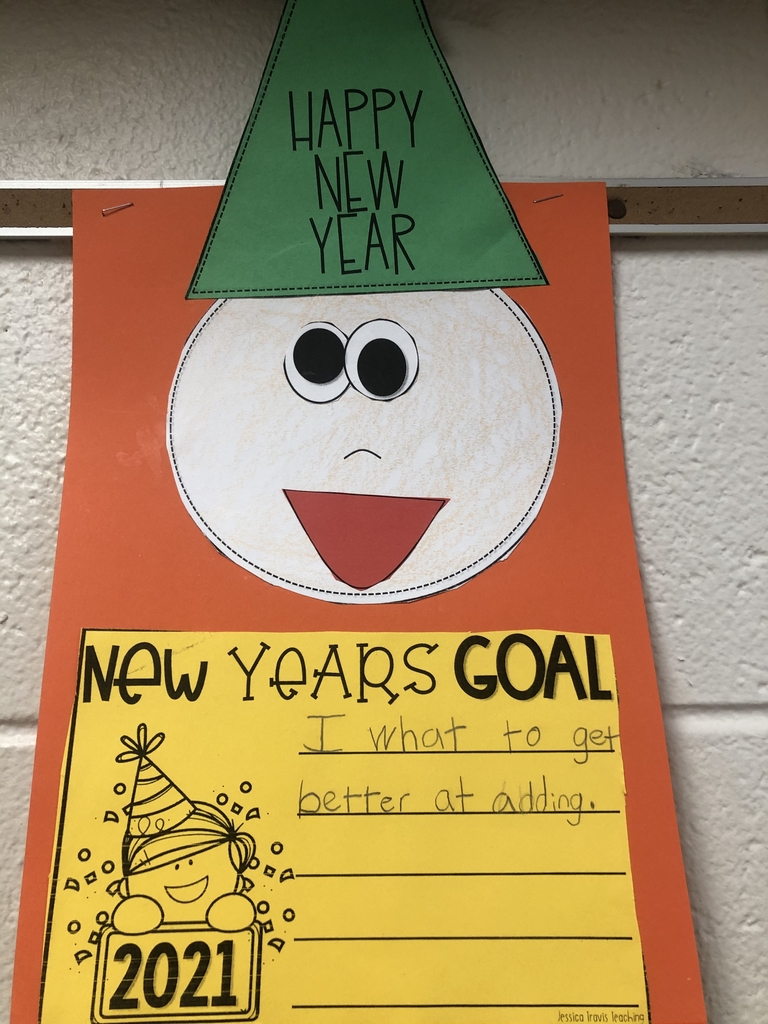 HAPPY
NEW
YEAR
New YeARS GOAL
I what to get
better at adding.
2021
Jessica Travis Teaching